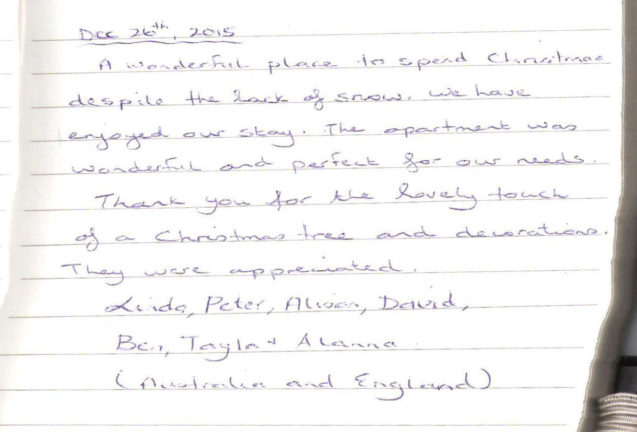 Dec 26th, 2015
A wonderful place to spend Christmas
despite the lack of snow. We have
enjoyed our stay. The apartment was
wonderful and perfect for our needs.
Thank you for the lovely touch
of a Christmas tree and decorations.
They were appreciated.
Linda, Peter, Alison, David,
Ben, Tayla & Alanna
(Australia and England)